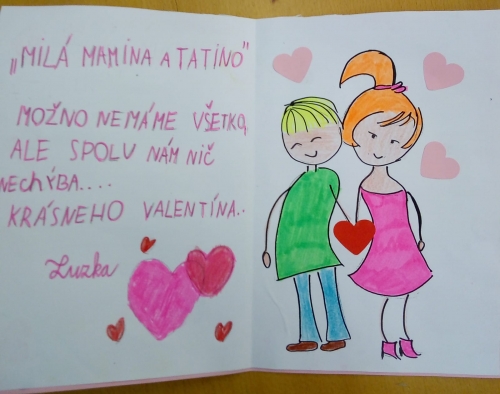 „MILÁ MAMINA A TATINO"
MOŽNO NEMÁME VŠETKO,
ALE SPOLU NÁM NIČ
NECHÝBA....
KRÁSNEHO VALENTÍNA..
Luzka